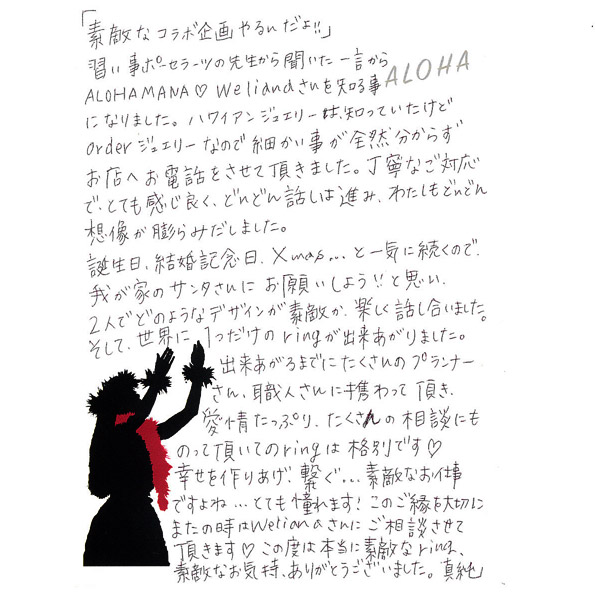 「素敵なコラボ企画やるいだよ!!」
習い事ポーセラーツの先生から聞いた一言から
ALOHA
ALOHAMANA♡Welianaさんを知る事
になりました。ハワイアンジュエリーは、知っていたけど
orderジュエリーなので細かい事が全然分からず
お店へお電話をさせて頂きました。丁寧なご対応
で、とても感じ良く、どんどん話しは進み、わたしもどんどん
想像が膨らみだしました。
誕生日、結婚記念日、Xmas...と一気に続くので、
我が家のサンタさんにお願いしよう!!と思い、
2人でどのようなデザインが素敵か、楽しく話し合いました。
そして、世界に1つだけのringが出来あがりました。
出来あがるまでにたくさんのプランナー
さん、職人さんに携わって頂き、
愛情たっぷり、たくさんの相談にも
のって頂いてのringは格別です♡
幸せを作りあげ、繋ぐ...素敵なお仕事
ですよね...とても憧れます!このご縁を大切に
またの時はWelianaさんにご相談させて
頂きます♡この度は本当に素敵なring、
素敵なお気持、ありがとうございました。真純